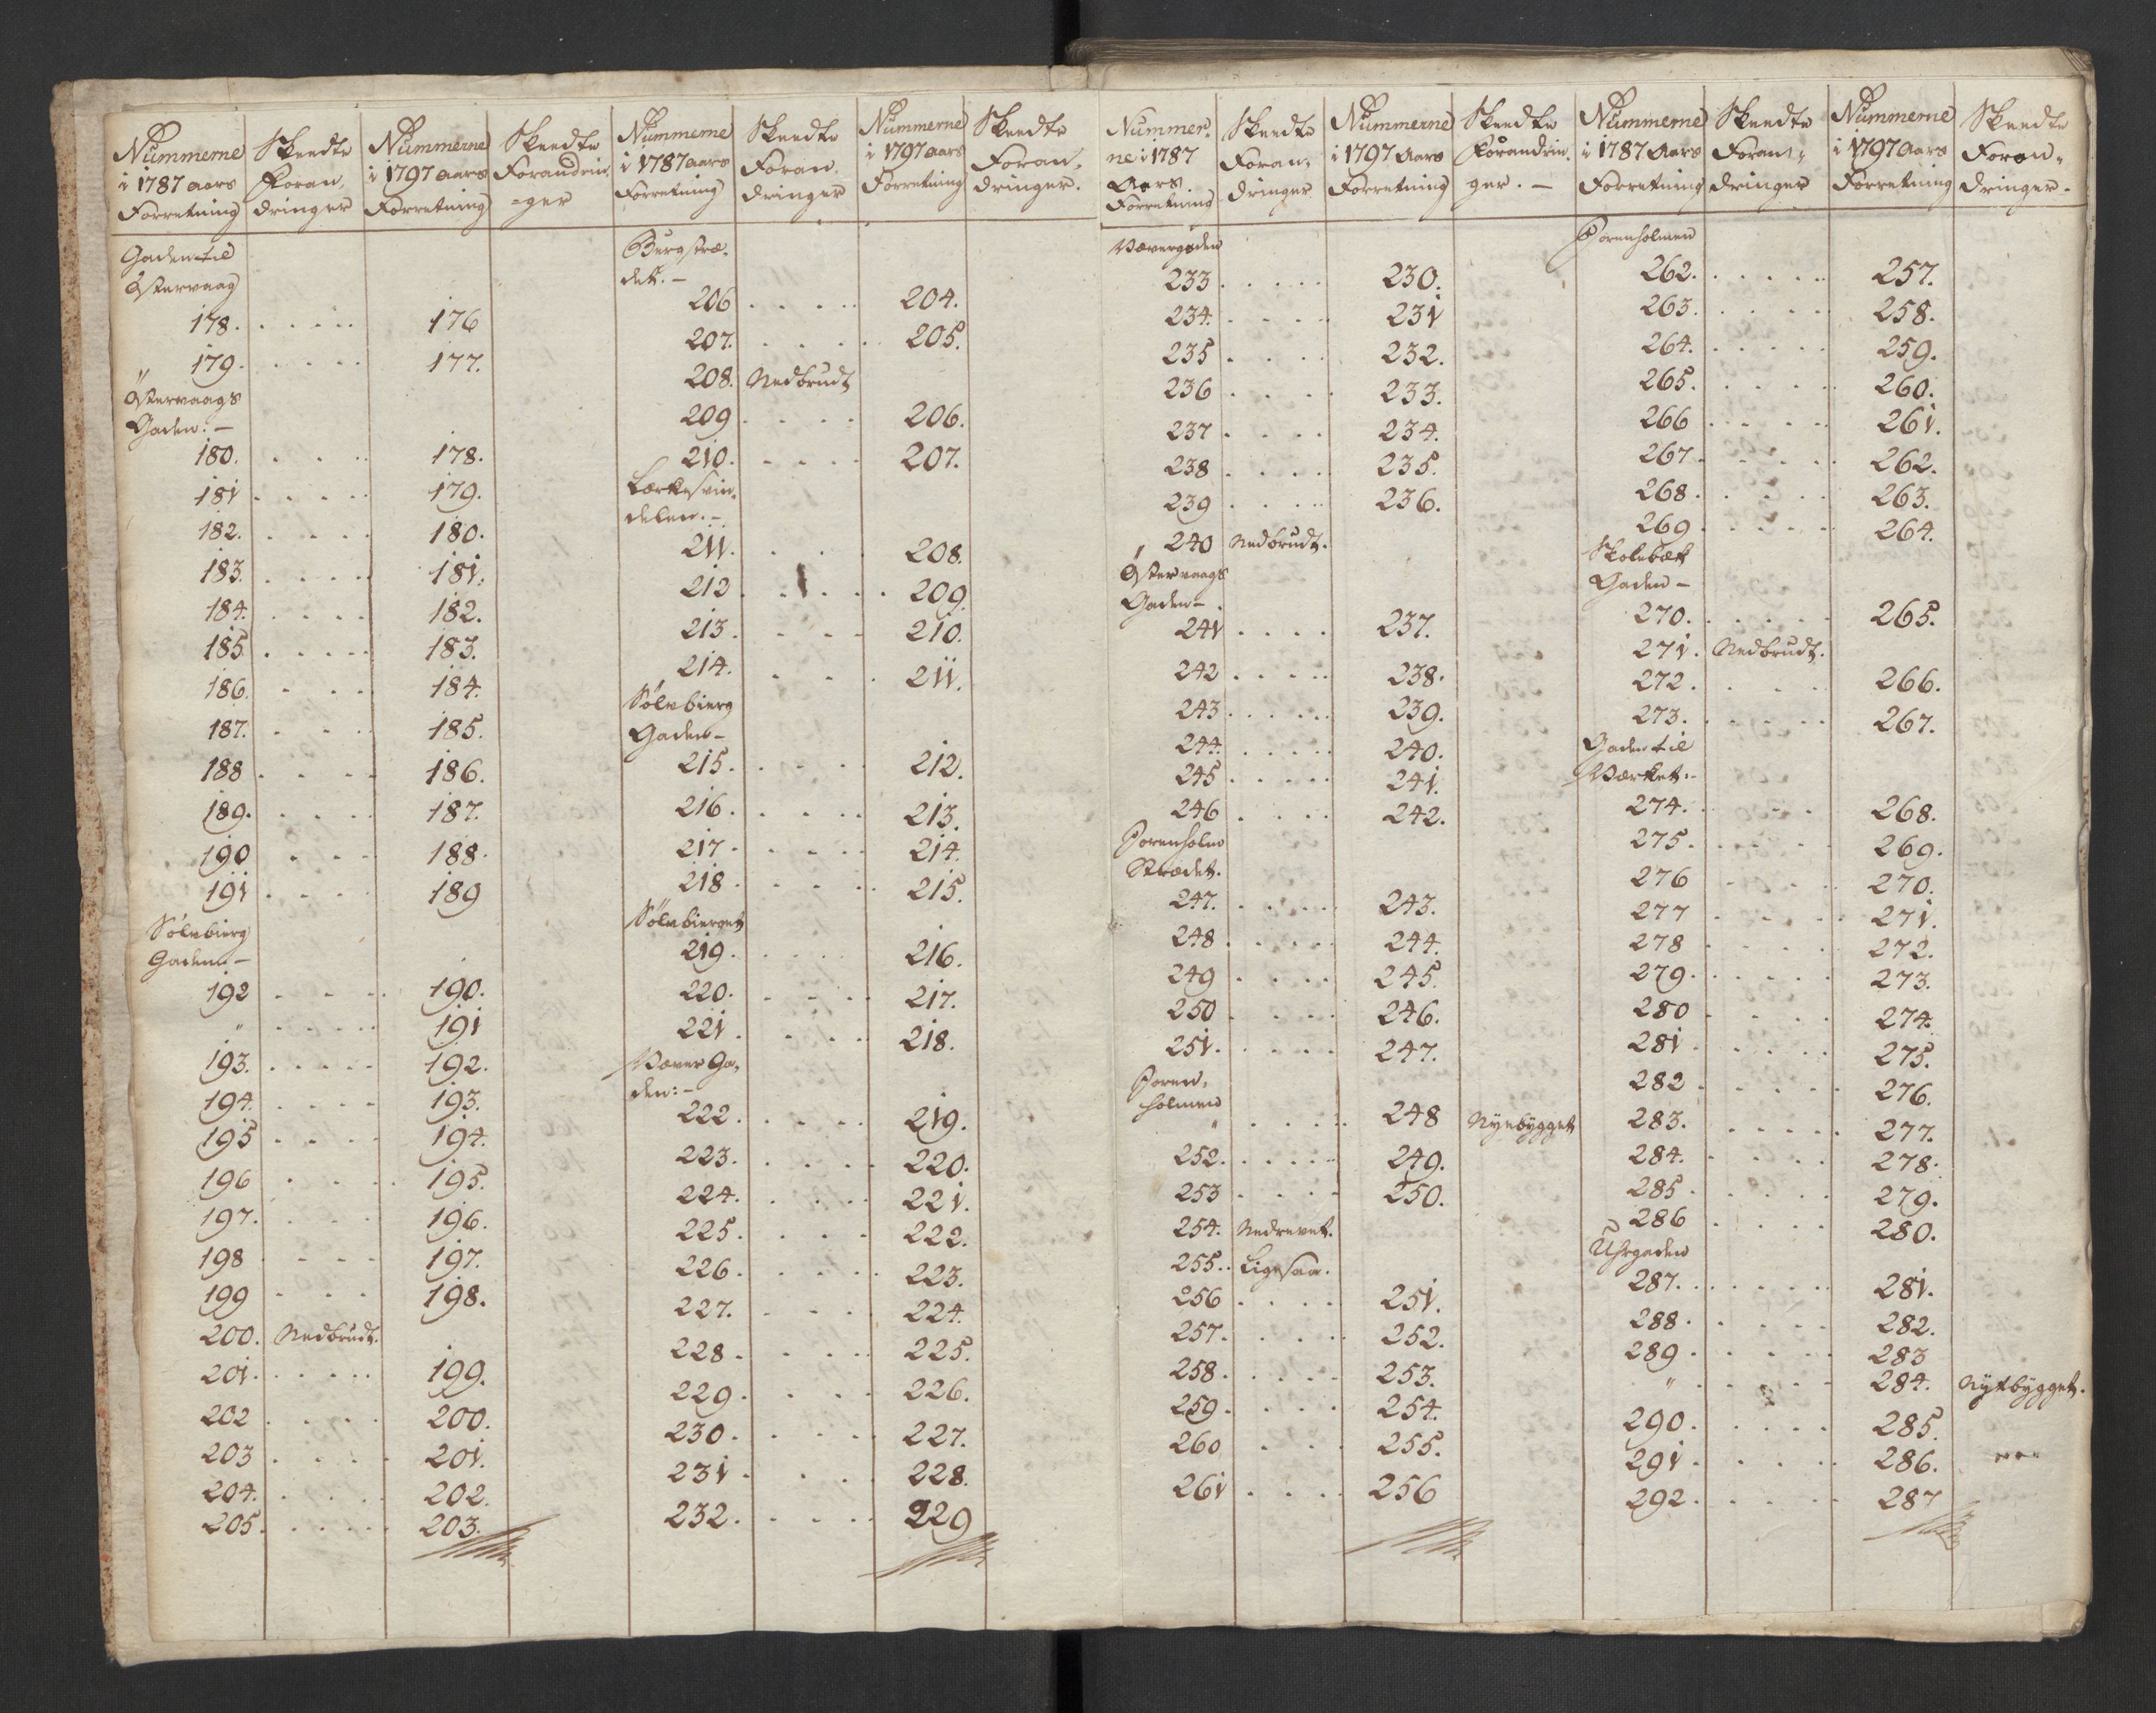 Nummerne i 1787 Aars Forretning | Skeedte Foran- dringer | Nummerne i 1797 Aars Forretning | Skeedte Forandrin- -ger
Gaden til
Østervaag
178. . . . . . 176
179. . . . . . 177.
Østervaags
Gaden. –
180. . . . . 178.
181 . . . . . 179.
182. . . . . 180.
183. . . . . 181.
184. . . . . 182.
185 . . . . . 183.
186. . . . . 184.
187. . . . . 185.
188 . . . . 186.
189. . . . . 187.
190 . . . . 188.
191 . . . . 189
Sølvbierg
Gaden. –
192 . . . . 190.
" . . . . . 191
193. . . . . . 192.
194. . . . . 193.
195 . . . . 194.
196 . . . . 195.
197. . . . . 196.
198 . . . . 197.
199 . . . . 198.
200. Nedbrudt.
201. . . . . . 199.
202 . . . . 200.
203 . . . . 201.
204. . . . . 202.
205. . . . . . 203.
Nummerne i 1787 aars Forretning | Skeedte Foran- dringer | Nummerne i 1797 aars Forretning | Skeedte Foran- dringer.
Bergstræ-
det. –
206 . . . . . 204.
207. . . . . 205.
208. Nedbrudt
209 . . . . 206.
210. . . . . 207.
Lærkesvin-
delen. –
211. . . . . 208.
212 . . . . . 209.
213. . . . . 210.
214. . . . . 211.
Sølvbierg
Gaden –
215. . . . . 212.
216. . . . . 213.
217 . . . . . 214.
218. . . . . 215.
Sølvbierget
219. . . . . 216.
220. . . . . 217.
221 . . . . 218.
Væver Ga-
den: –
222. . . . . 219.
223. . . . . 220.
224. . . . . 221.
225. . . . . 222.
226. . . . . . 223.
227. . . . . 224.
228. . . . . 225.
229. . . . . 226.
230. . . . . 227.
231 . . . . 228.
232. . . . . 229
Nummer- ne i 1787 Aars Forretning | Skeedte Foran- dringer | Nummerne i 1797 Aars Forretning | Skeedte Forandrin- ger. –
Vævergaden
233 . . . . . 230.
234. . . . . 231
235 . . . . 232.
236 . . . . 233.
237 . . . . 234.
238 . . . . 235.
239 . . . . 236.
240 Nedbrudt.
Østervaags
Gaden –
241 . . . . 237.
242 . . . . . 238.
243 . . . . . 239.
244. . . . . . 240.
245 . . . . . 241.
246 . . . . 242.
Sorenholm
Strædet.
247. . . . . 243.
248 . . . . . 244.
249 . . . . 245.
250 . . . . 246.
251. . . . . 247.
Soren-
holmen
" . . . . 248 Nyebygget
252. . . . . . 249.
253 . . . . 250.
254. Nedrevet.
255. Ligesaa.
256 . . . . 251.
257. . . . . 252.
258. . . . . 253.
259. . . . . 254.
260 . . . . 255.
261 . . . . 256
Nummerne i 1787 Aars Forretning | Skeedte Foran- dringer | Nummerne i 1797 Aars Forretning | Skeedte Foran- dringer.
Sorenholmen
262. . . . . . 257.
263. . . . . 258.
264. . . . . . 259.
265. . . . . 260.
266 . . . . . 261.
267. . . . . . 262.
268. . . . . 263.
269 . . . . . 264.
Skolebæk
Gaden –
270. . . . . . 265.
271. Nedbrudt.
272. . . . . 266.
273. . . . . . 267.
Gaden til
Værket. –
274. . . . . 268.
275. . . . . . 269.
276 . . . . 270.
277 . . . . 271.
278 . . . . 272.
279. . . . . . 273.
280 . . . . 274.
281 . . . . . 275.
282 . . . . . 276.
283. . . . . . 277.
284. . . . . 278.
285 . . . . . 279.
286 . . . . 280.
Uhrgaden
287. . . . . . 281.
288. . . . . 282.
289 . . . . . 283
" . . . . . 284. Nyebygget.
290. . . . . 285.
291 . . . . . 286.
292. . . . . 287